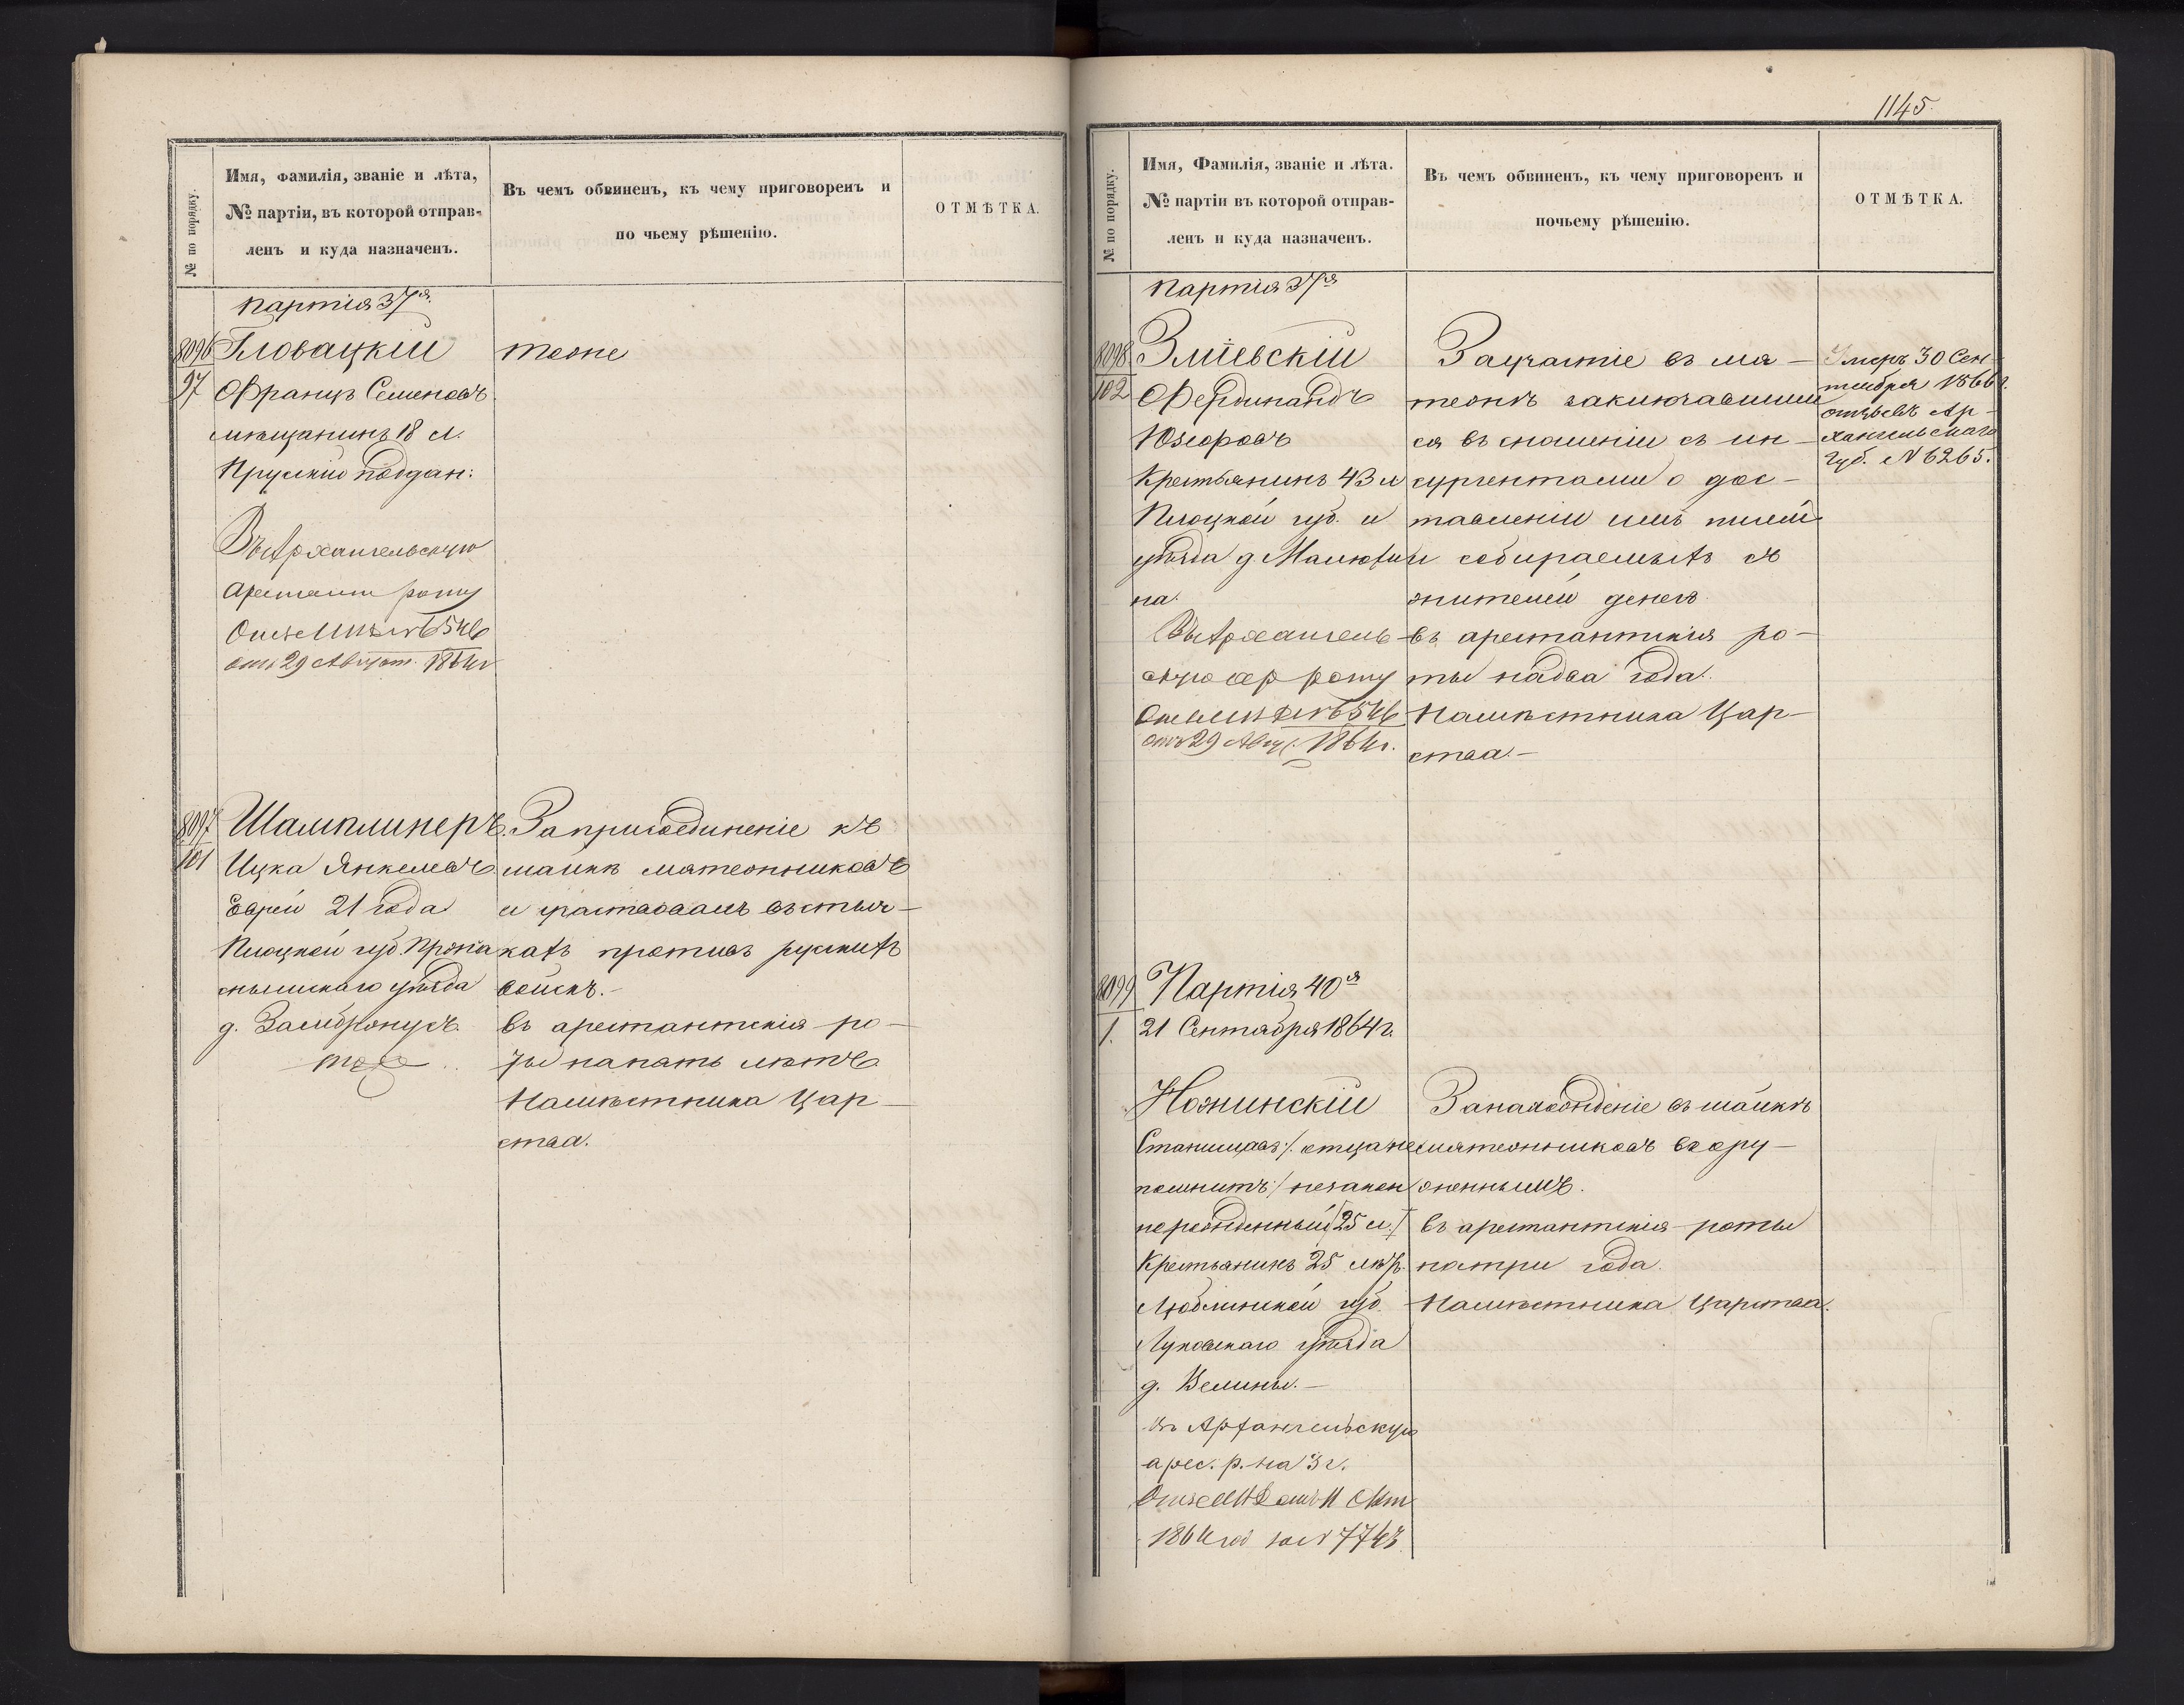 № по порядку.
Имя, фамилія, званіе и лѣта,
№ партіи, въ которой отправ-
ленъ и куда назначенъ.
Въ чемъ обвиненъ, къ чему приговоренъ и
по чьему рѣшенію.
ОТМѢТКА.
Партія 37я
8096
97
Гловацкій
Францъ Семеновъ
мѣщанинъ 18 л.
Прускій поддан:
Въ Архангельскую
Арестант роту
546
отъ 29 Август. 1864 г
тоже
8097
101
Шамплинеръ.
Ицка Янкелевъ
Еврей 21 года
Плоцкой губ. Прона
снышскаго уѣзда
д. Замбронусъ.
тоже
За присоединеніе къ
шайкѣ мятежниковъ
и участвовалъ въ стыч-
кахъ противъ рускихъ
войскъ.-
въ арестантскія ро-
ты на пять лѣтъ
Намѣстника Цар-
ства.
1145.
№ по порядку.
Имя, Фамилія, званіе и лѣта.
№ партіи въ которой отправ-
ленъ и куда назначенъ.
Въ чемъ обвиненъ, къ чему приговоренъ и
почьему рѣшенію.
ОТМѢТКА.
Партія 37я
8098
102
Зміевскій
Фердинандъ
Юзефовъ
Крестьянинъ 43 л
Плоцкой губ. и
уѣзда д. Малюжи
на.
Въ Архангель-
скую ар роту
546
отъ 29 Авгус. 1864 г.
За участіе въ мя-
тежѣ заключавшим
ся въ сношеніи съ ин-
сургентами о дос-
тавленіи имъ
и собираемыхъ съ
жителей денегъ
въ арестантскія ро-
ты на два года.
Намѣстника Цар-
ства.-
Умеръ 30 Сен-
тября 1866 г.
отзывъ Ар-
хангельскаго
Губ. N 6265.
8099
1.
Партія 40я
21 Сентября 1864 г.
Ножинскій
Станиславъ /: отца не
помнитъ :/ незакон
норожденный /25 л./
Крестьянинъ 25 лѣтъ.
Люблинской губ.
Луковскаго уѣзда
д. Велины.-
въ Архангельскую
арес. р. на 3 г.
11 Окт
1864 год за N 7743
За нахожденіе въ шайкѣ
мятежниковъ воору-
женнымъ.
въ арестантскія роты
на три года.
Намѣстника Царства.